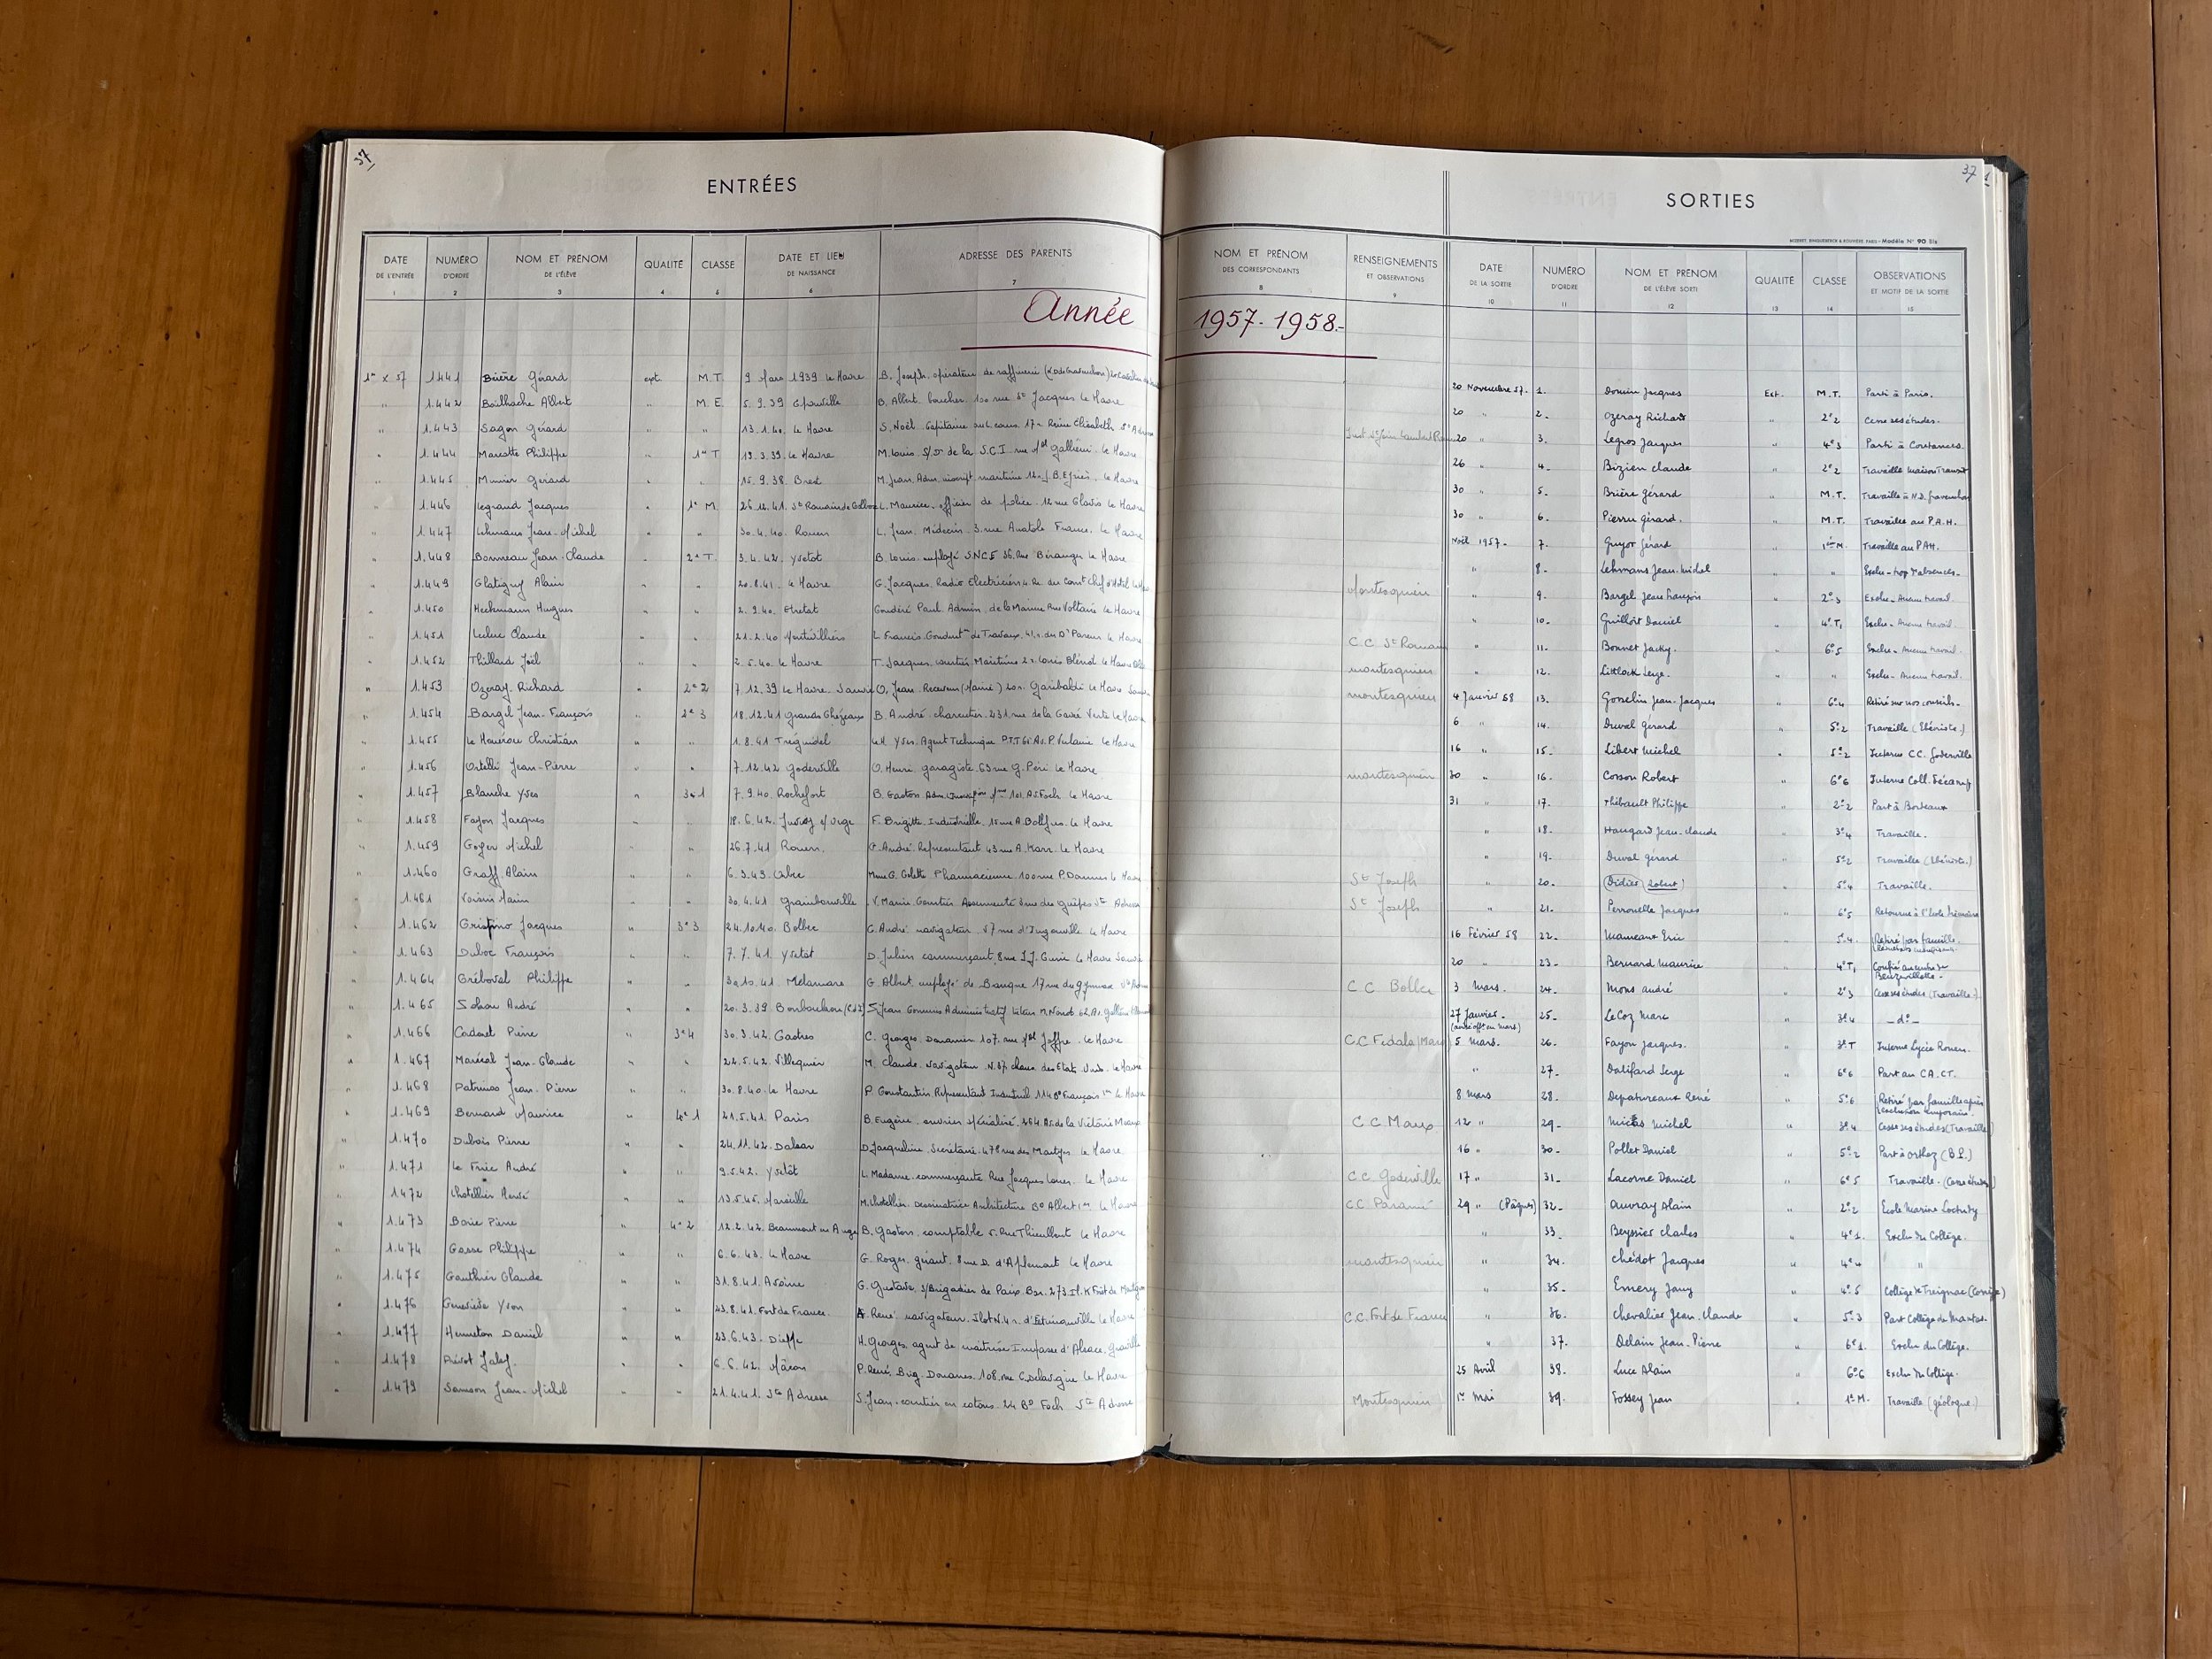 37
ENTRÉES
DATE DE L'ENTRÉE 1
NUMÉRO D'ORDRE 2
NOM ET PRÉNOM DE L'ÉLÈVE 3
QUALITÉ 4
CLASSE 5
DATE ET LIEU DE NAISSANCE 6
ADRESSE DES PARENTS 7
Année
1er X 57 1441 Brière Gérard ext. M.T. 9 Mars 1939 Le Havre B. Joseph. opérateur de raffinerie
" 1.442 Bailhache Albert " M.E. 5.9.39 B. Albert. boucher. 100 rue St Jacques Le Havre
" 1.443 Sagon Gérard " " 13.1.40. Le Havre S. Noël. Capitaine au L. cours. 17 r. Reine Elisabeth Ste Adresse
" 1.444 Marcotte Philippe " 1re T 19.3.39. Le Havre M. Louis. de la S.C.I. rue Gallieni. Le Havre
" 1.445 Gérard " " 15.9.38. Brest M. Jean. Adm. inscript. maritime J.B. Eyriès. Le Havre
" 1.446 Legrand Jacques " 1e M. 26.12.41. St Romain de Colbosc L. Maurice. officier de police. 12 rue Clovis Le Havre
" 1.447 Lehmans Jean-Michel " " 30.4.40. Rouen L. Jean. Médecin. 3. rue Anatole France. Le Havre
" 1.448 Bonneau Jean-Claude " 2e T. 3.4.42. Yvetot B. Louis. employé S.N.C.F. 36. Rue Béranger Le Havre
" 1.449 Glatigny Alain " " 20.8.41. Le Havre G. Jacques. Radio Electricien
" 1.450 Heckmann Hugues " " 2.9.40. Etretat Paul. Admin. de la Marine Rue Voltaire Le Havre
" 1.451 Leduc Claude " " 21.2.40 Montivilliers L. Francis. Conduct. de Travaux. Le Havre
" 1.452 Thillard Joël " " 2.5.40. Le Havre T. Jacques. courtier Maritime 2 r. Louis Blériot Le Havre
" 1.453 Ozeray Richard " 2e 2 7.12.39 Le Havre. Sanvic O. Jean. Receveur (Mairie) 20 r. Garibaldi Le Havre Sanvic
" 1.454 Bargel Jean-François " 2e 3 18.12.41 B. André. charcutier. 231. rue de la Cavée Verte Le Havre
" 1.455 Le Houérou Christian " " 1.8.41 Tréguidel Le H. Yves. Agent Technique P.T.T. Le Havre
" 1.456 Ortelli Jean-Pierre " " 7.12.42 Goderville O. Henri. garagiste. 63 rue G. Péri Le Havre
" 1.457 Blanche Yves " 3e 1 7.9.40. Rochefort B. Gaston Av. Foch. Le Havre
" 1.458 Fayon Jacques " " 18.6.42. Juvisy s/ Orge F. Brigitte. Industrielle. Le Havre
" 1.459 Goyer Michel " " 26.7.41 Rouen. G. André. Représentant 43 rue A. Karr. Le Havre
" 1.460 Graff Alain " " 6.3.43. Mme G. Colette. Pharmacienne. 100 rue P. Doumer Le Havre
" 1.461 Voisin Alain " " 30.4.41 Grainbouville V. Marie. Ste Adresse
" 1.462 Crispino Jacques " 3e 3 24.10.40. Bolbec C. André navigateur. 57 rue d'Ingouville Le Havre
" 1.463 Duboc François " " 7.7.41. Yvetot D. Julien commerçant. Le Havre Sanvic
" 1.464 Gréboval Philippe " " 30.10.41. Mélamare G. Albert. employé de Banque 17 rue du gymnase
" 1.465 André " " 20.3.39 S. Jean. Commis Administratif
" 1.466 Cardonet Pierre " 3e 4 30.3.42. Castres C. Georges. Douanier. 107. rue Mal Joffre. Le Havre
" 1.467 Maréval Jean-Claude " " 22.5.42. Villequier M. Claude. navigateur. des Etats-Unis. Le Havre
" 1.468 Patrinos Jean-Pierre " " 30.8.40. Le Havre P. Constantin Représentant 114 Bd François 1er Le Havre
" 1.469 Bernard Maurice " 4e 1 21.5.41. Paris B. Eugène. ouvrier spécialisé. Av. de la Victoire
" 1.470 Dubois Pierre " " 24.11.42. Dakar D. Jacqueline. Secrétaire. rue des Martyrs. Le Havre
" 1.471 Le Fric André " " 9.5.42. Yvetôt L. Madame. commerçante Rue Jacques Louer. Le Havre
" 1.472 Lhotellier Hervé " " 13.5.45. Marseille M. Lhotellier. Dessinatrice Architecture Bd Albert 1er Le Havre
" 1.473 Pierre " 4e 2 12.2.42. Beaumont en Auge B. Gaston. comptable 5. Rue Thieullent Le Havre
" 1.474 Gosse Philippe " " 6.6.43. Le Havre G. Roger. gérant. d'Aplemont Le Havre
" 1.475 Gauthier Claude " " 31.8.41. Avoine G. Gustave. s/Brigadier de Paix.
" 1.476 Geneviève Yvon " " 23.8.41. Fort de France. A. René. navigateur. Le Havre
" 1.477 Henneton Daniel " " 23.6.43. Dieppe H. Georges. agent de maîtrise Impasse d'Alsace. Graville
" 1.478 " " 6.6.42. Mâcon P. René. Brig. Douanes. 108. rue C. Delavigne Le Havre
" 1.479 Samson Jean-Michel " " 21.4.41. Ste Adresse S. Jean. courtier en cotons. 24 Bd Foch Ste Adresse
37
SORTIES
Modèle N° 90 Bis
NOM ET PRÉNOM DES CORRESPONDANTS 8
RENSEIGNEMENTS ET OBSERVATIONS 9
DATE DE LA SORTIE 10
NUMÉRO D'ORDRE 11
NOM ET PRÉNOM DE L'ÉLÈVE SORTI 12
QUALITÉ 13
CLASSE 14
OBSERVATIONS ET MOTIF DE LA SORTIE 15
1957-1958.-
20 Novembre 57. 1. Domin Jacques Ext. M.T. Parti à Paris.
20 " 2. Ozeray Richard " 2e2 Cesse ses études.
20 " 3. Legros Jacques " 4e3 Parti à Coutances.
26 " 4. Bizien Claude " 2e2 Travaille maison Transit
30 " 5. Brière Gérard " M.T. Travaille à N.D. Gravenchon
30 " 6. Pierru Gérard. " M.T. Travaille au P.A.H.
Noël 1957 - 7. Guyot Gérard " 1ère M. Travaille au PAH.
" 8. Lehmans Jean-Michel " " Exclu - trop d'absences -
Montesquieu " 9. Bargel Jean François " 2e3 Exclu - Aucun travail.
" 10. Guilloit Daniel " 4e T1 Exclu - Aucun travail.
C.C. St Romain " 11. Bonnet Jacky. " 6e5 Exclu - Aucun travail.
montesquieu " 12. Littlock Serge. " " Exclu - Aucun travail.
montesquieu 4 Janvier 58 13. Gosselin Jean-Jacques " 6e4 Retiré sur nos conseils -
6 " 14. Duval Gérard " 5e2 Travaille (Ebéniste.)
16 " 15. Libert Michel " 5e2 Interne C.C. Goderville
montesquieu 30 " 16. Corson Robert " 6e6 Interne Coll. Fécamp
31 " 17. Thébault Philippe " 2e2 Part à Bordeaux
" 18. Haugard Jean-Claude " 3e4 Travaille.
" 19. Duval Gérard " 5e2 Travaille (Ebéniste.)
St Joseph " 20. (Didier Robert) " 5e4 Travaille.
St Joseph " 21. Perronelle Jacques " 6e5 Retourne à l'école primaire
16 Février 58 22. Manceaux Eric " 5e4. Retiré par famille. Résultats insuffisants.
20 " 23. Bernard Maurice " 4e T1 Confié au centre de Beuzevillette -
C C Bolbec 3 Mars. 24. Mons André " 2e3 Cesse ses études (Travaille.)
27 Janvier. 25. Le Coz Marc " 3e4 - d° -
C.C Fedala (Maroc) 5 Mars. 26. Fayon Jacques. " 3e T Interne Lycée Rouen.
" 27. Dalifard Serge " 6e6 Part au CA.CT.
8 Mars 28. Depatureaux René " 5e6 Retiré par famille après exclusion temporaire.
C C Maux 12 " 29. Michel " 3e4 Cesse ses études (Travaille)
16 " 30. Pollet Daniel " 5e2 Part à Orthez (B.P.)
C.C. Goderville 17 " 31. Lacorne Daniel " 6e5 Travaille. (Cesse études)
C.C Paramé 29 " (Pâques) 32. Auvray Alain " 2e2 Ecole Marine Loctudy
" 33. Beyssier Charles " 4e1. Exclu du Collège.
montesquieu " 34. Chédot Jacques " 4e4 "
" 35. Emery Jany " 4e5 Collège de Treignac (Corrèze)
C.C. Fort de France " 36. Chevalier Jean-Claude " 5e3 Part Collège de Mantes.
" 37. Delain Jean-Pierre " 6e1. Exclu du Collège.
25 Avril 38. Luce Alain " 6e6 Exclu du Collège.
Montesquieu 1er Mai 39. Fossey Jean " 1e M. Travaille (géologue.)